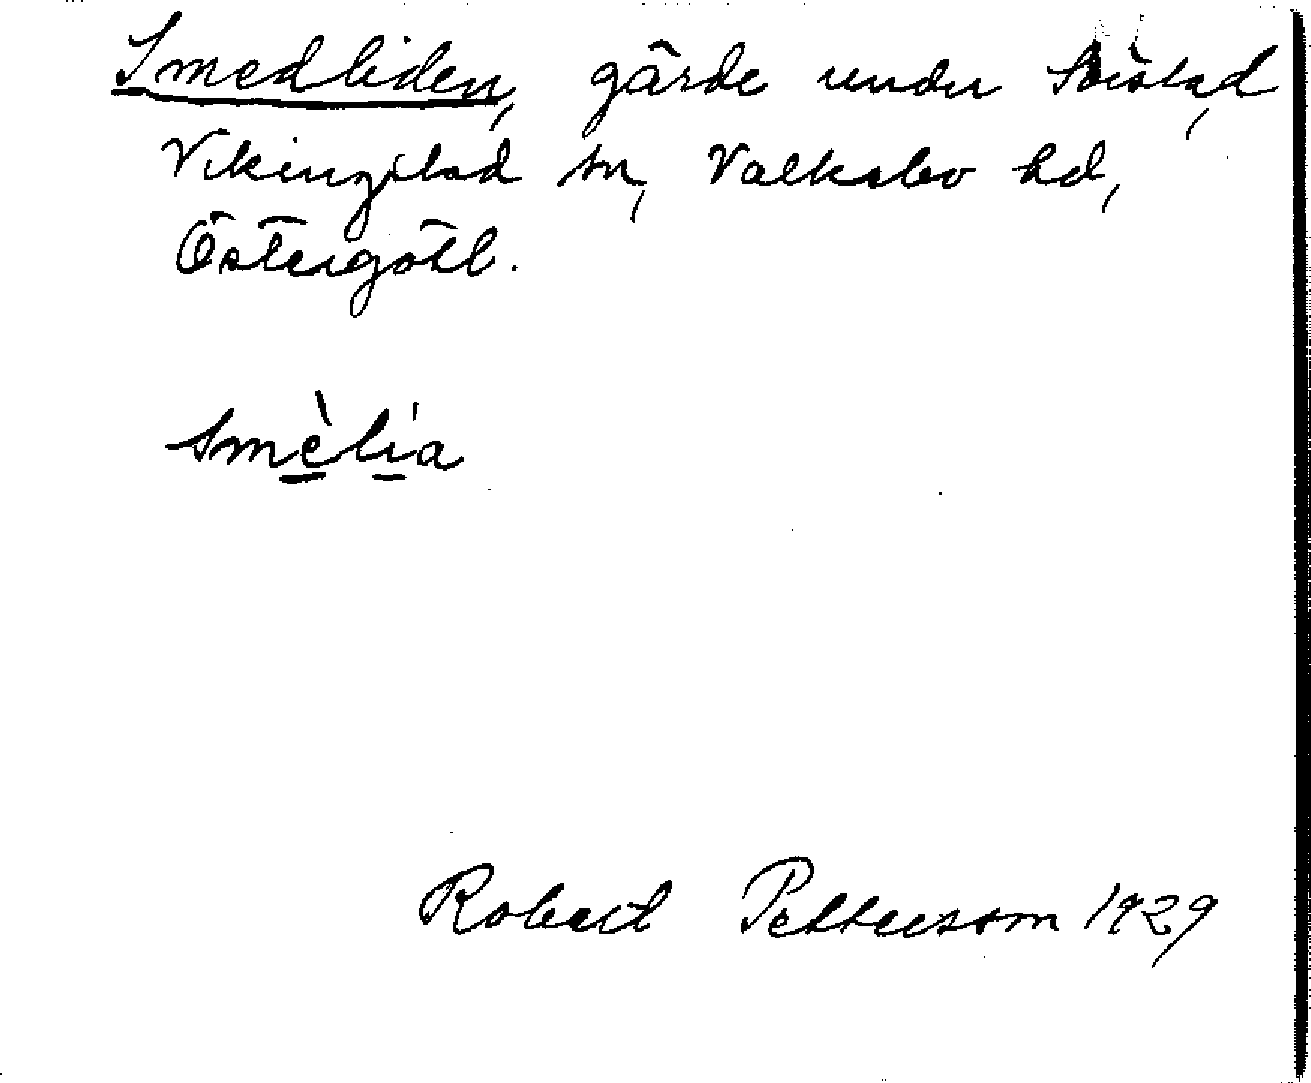 Smedliden, gärde under
Vikingstad sn, Valkebo hd,
Östergötl.
smèlía
Robert Pettersson 1929